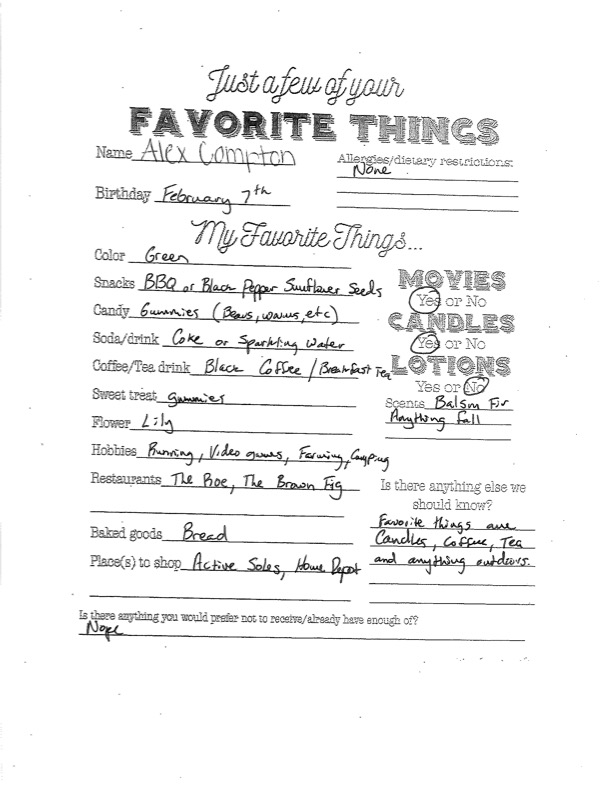 Just a few of your
FAVORITE THINGS
Name Alex Compton
Allergies/dietary restrictions:
None
Birthday February 7th
My Favorite Things...
Color Green
Snacks BBQ or Black Pepper Sunflower Seeds
Candy Gummies (Bears, worms, etc)
Soda/drink Coke or Sparkling Water
Coffee/Tea drink Black Coffee / Breakfast Tea
Sweet treat gummies
Flower Lily
Hobbies Running, Video games, Farming, Camping
Restaurants The Roe, The Brown Fig
Baked goods Bread
Place(s) to shop Active Soles, Home Depot
MOVIES
Yes or No
CANDLES
Yes or No
LOTIONS
Yes or No
Scents Balsm Fir
Anything fall
Is there anything else we
should know?
Favorite things are
Candles, Coffee, Tea
and anything outdoors.
Is there anything you would prefer not to receive/already have enough of?
Nope